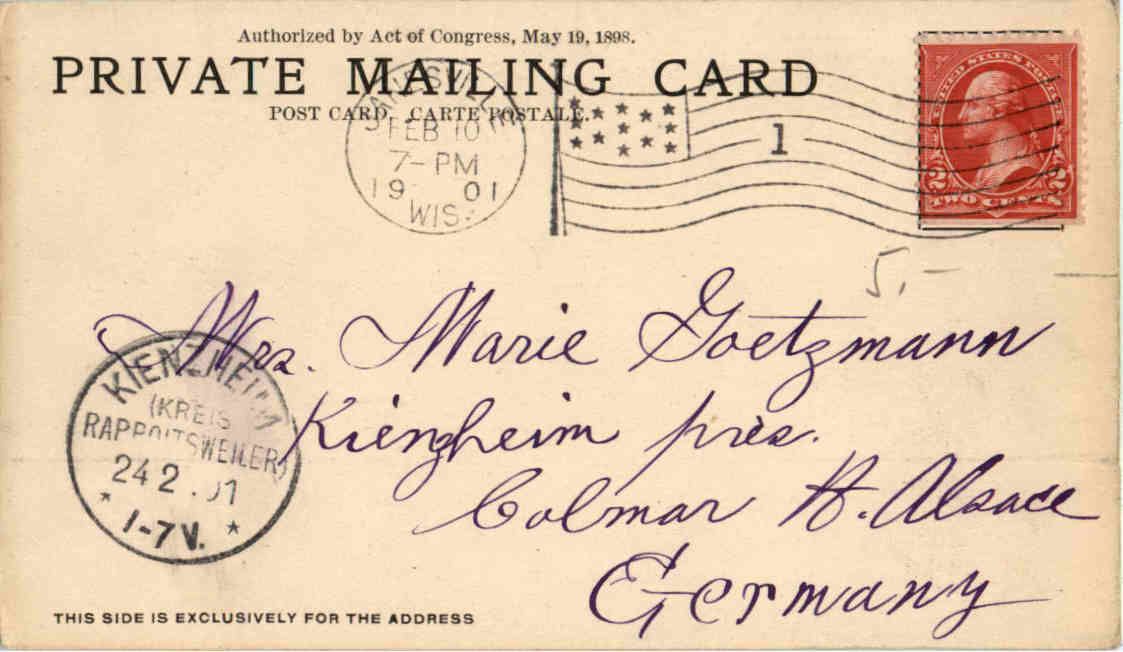 Authorized by Act of Congress, May 19, 1898.
PRIVATE MAILING CARD
POST CARD, CARTE POSTALE.
JANESVILLE
FEB 10
7-PM
1901
WIS.
1
UNITED STATES
2 2
TWO CENTS
5.-
Mrs. Marie Goetzmann
Kienzheim près.
Colmar H. Alsace
Germany
KIENZHEIM
(KREIS
RAPPOLTSWEILER)
24 2 .01
* 1-7 V. *
THIS SIDE IS EXCLUSIVELY FOR THE ADDRESS